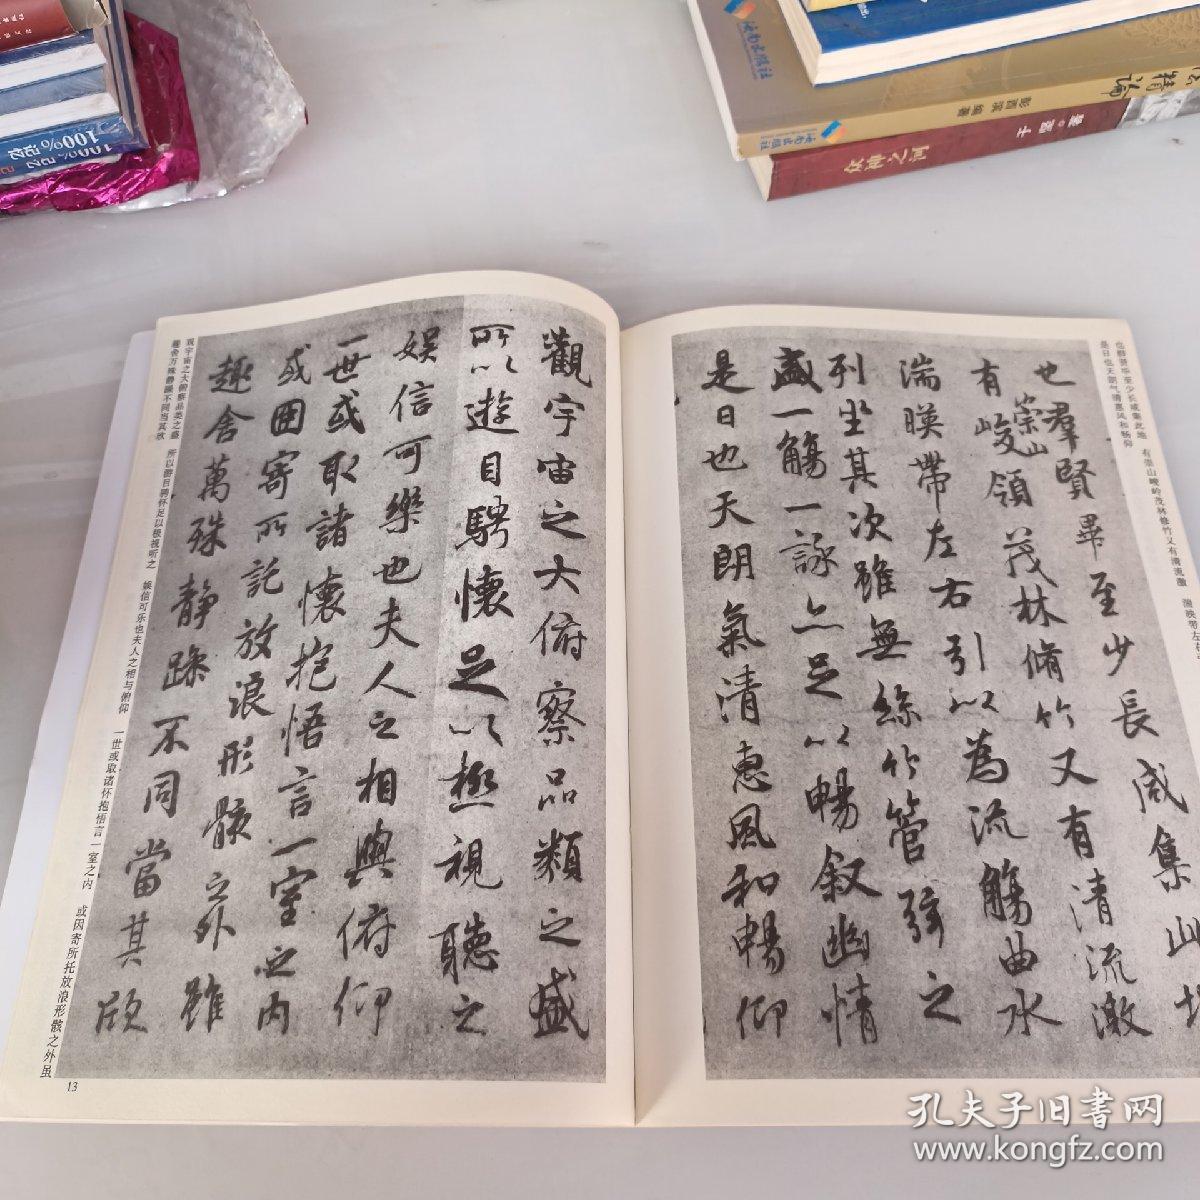 也羣賢畢至少長咸集此地
有崇山峻領茂林脩竹又有清流激
湍暎帶左右引以為流觴曲水
列坐其次雖無絲竹管弦之
盛一觴一詠亦足以暢叙幽情
是日也天朗氣清惠風和暢仰
觀宇宙之大俯察品類之盛
所以遊目騁懷足以極視聽之
娛信可樂也夫人之相與俯仰
一世或取諸懷抱悟言一室之內
或因寄所託放浪形骸之外雖
趣舍萬殊静躁不同當其欣
也群贤毕至少长咸集此地
有崇山峻岭茂林修竹又有清流激
湍映带左右
是日也天朗气清惠风和畅仰
观宇宙之大俯察品类之盛
所以游目骋怀足以极视听之
娱信可乐也夫人之相与俯仰
一世或取诸怀抱悟言一室之内
或因寄所托放浪形骸之外虽
趣舍万殊静躁不同当其欣
13
100%
济南出版社
彭西淇 编著
众神之河
于坚·著
孔夫子旧书网
www.kongfz.com